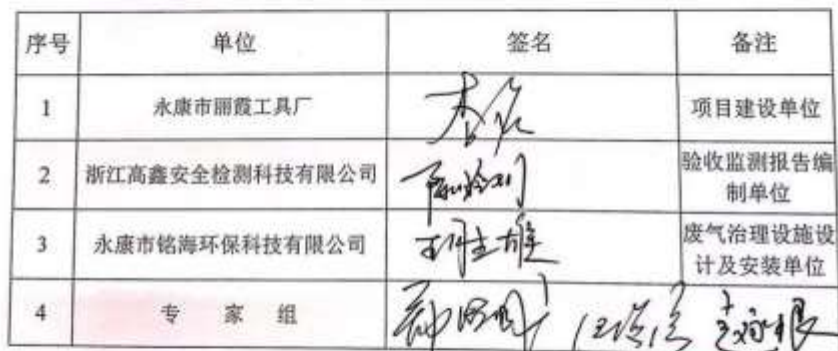 序号 单位 签名 备注
1 永康市丽霞工具厂 项目建设单位
2 浙江高鑫安全检测科技有限公司 验收监测报告编
制单位
3 永康市铭海环保科技有限公司 废气治理设施设
计及安装单位
4 专 家 组